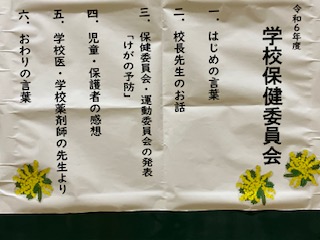 令和6年度
学校保健委員会
一．はじめの言葉
二．校長先生のお話
三．保健委員会・運動委員会の発表
「けがの予防」
四．児童・保護者の感想
五．学校医・学校薬剤師の先生より
六．おわりの言葉